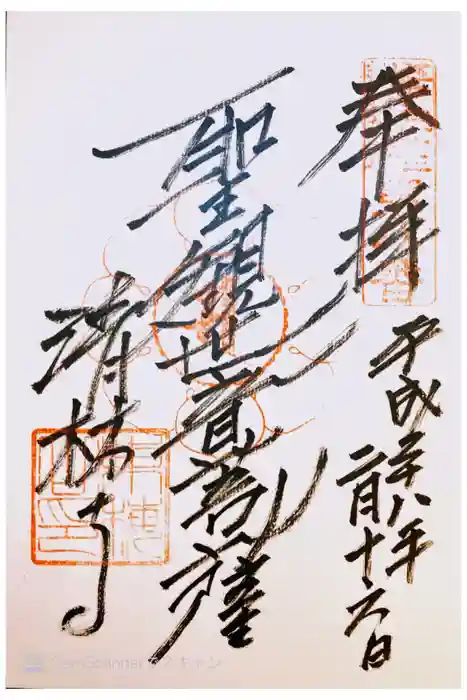 奉拝
平成二十八年
二月十六日
聖観世音菩薩
清林寺
CamScannerでスキャン